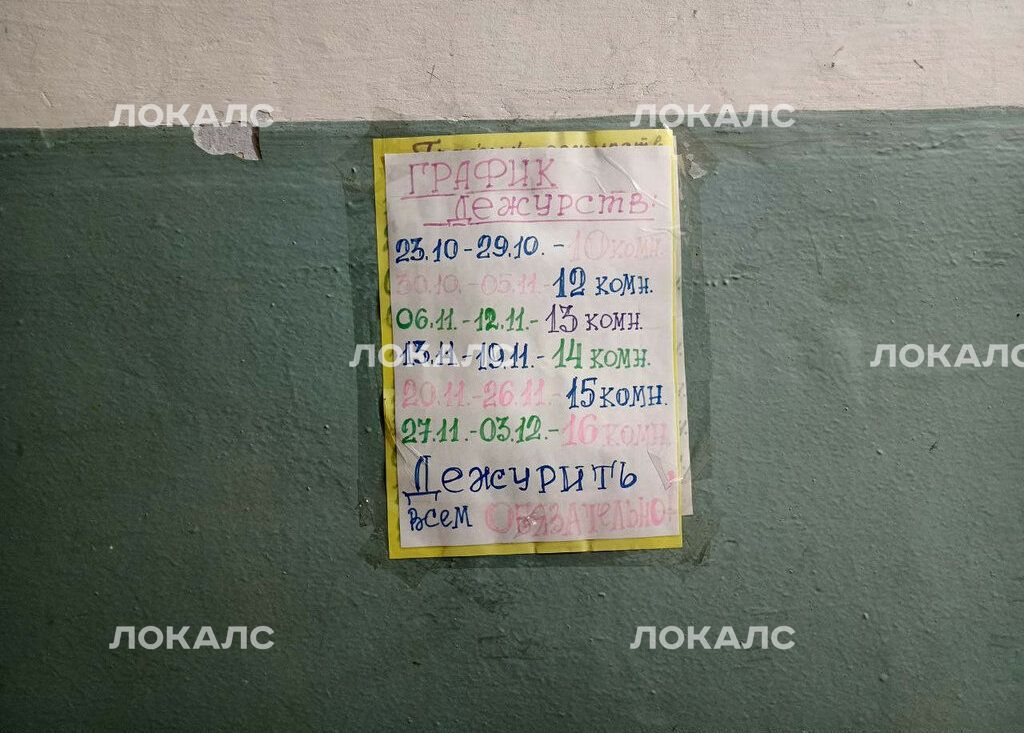 ЛОКАЛС ЛОКАЛС
ГРАФИК
ДЕЖУРСТВ:
23.10 - 29.10. - 10 комн.
30.10. - 05.11. - 12 комн.
06.11. - 12.11. - 13 комн.
13.11 - 19.11. - 14 комн.
ЛОКАЛС ЛОКАЛС
20.11. - 26.11. - 15 комн.
27.11. - 03.12. - 16 комн.
Дежурить
всем ОБЯЗАТЕЛЬНО!
ЛОКАЛС ЛОКАЛС